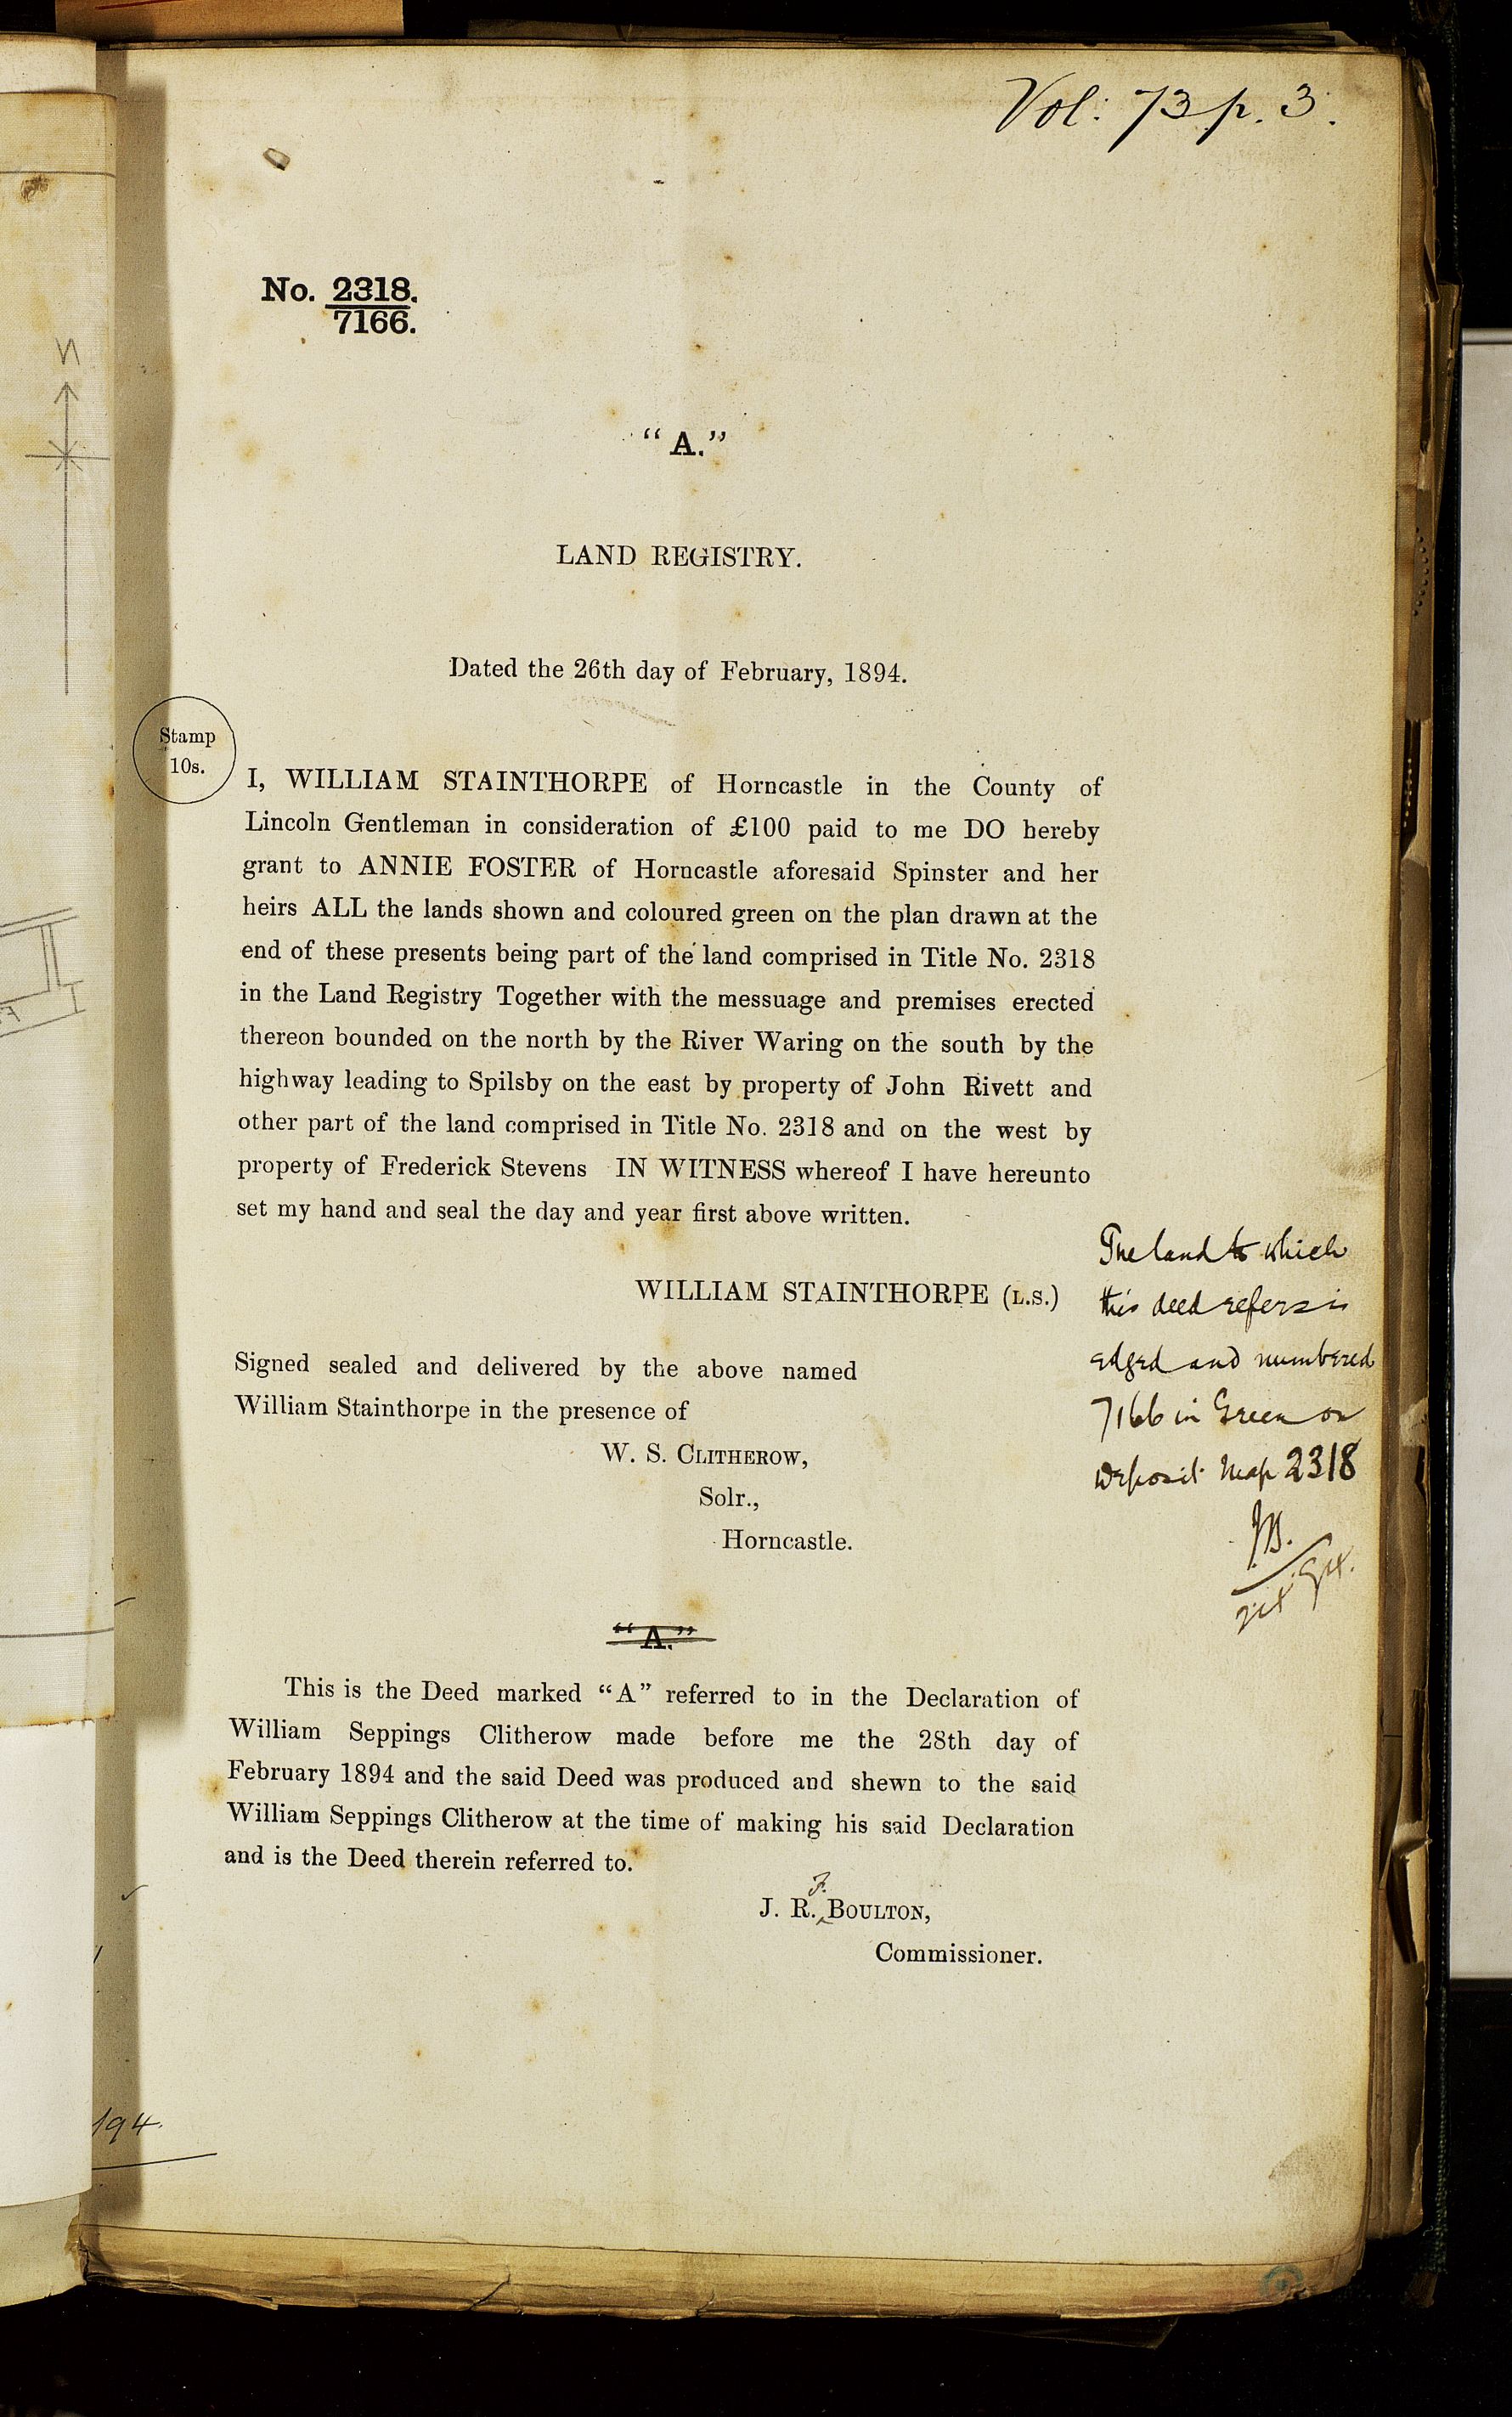 Vol: 73 p. 3.
No. 2318.
7166.
"A."
N
LAND REGISTRY.
Dated the 26th day of February, 1894.
Stamp
10s.
I, WILLIAM STAINTHORPE of Horncastle in the County of
Lincoln Gentleman in consideration of £100 paid to me DO hereby
grant to ANNIE FOSTER of Horncastle aforesaid Spinster and her
heirs ALL the lands shown and coloured green on the plan drawn at the
end of these presents being part of the land comprised in Title No. 2318
in the Land Registry Together with the messuage and premises erected
thereon bounded on the north by the River Waring on the south by the
highway leading to Spilsby on the east by property of John Rivett and
other part of the land comprised in Title No. 2318 and on the west by
property of Frederick Stevens IN WITNESS whereof I have hereunto
set my hand and seal the day and year first above written.
WILLIAM STAINTHORPE (L.S.)
The land to which
this deed refers is
edged and numbered
7166 in Green on
Deposit Map 2318
Signed sealed and delivered by the above named
William Stainthorpe in the presence of
W. S. CLITHEROW,
Solr.,
Horncastle.
"A."
This is the Deed marked "A" referred to in the Declaration of
William Seppings Clitherow made before me the 28th day of
February 1894 and the said Deed was produced and shewn to the said
William Seppings Clitherow at the time of making his said Declaration
and is the Deed therein referred to.
J. R. F. BOULTON,
Commissioner.
194.